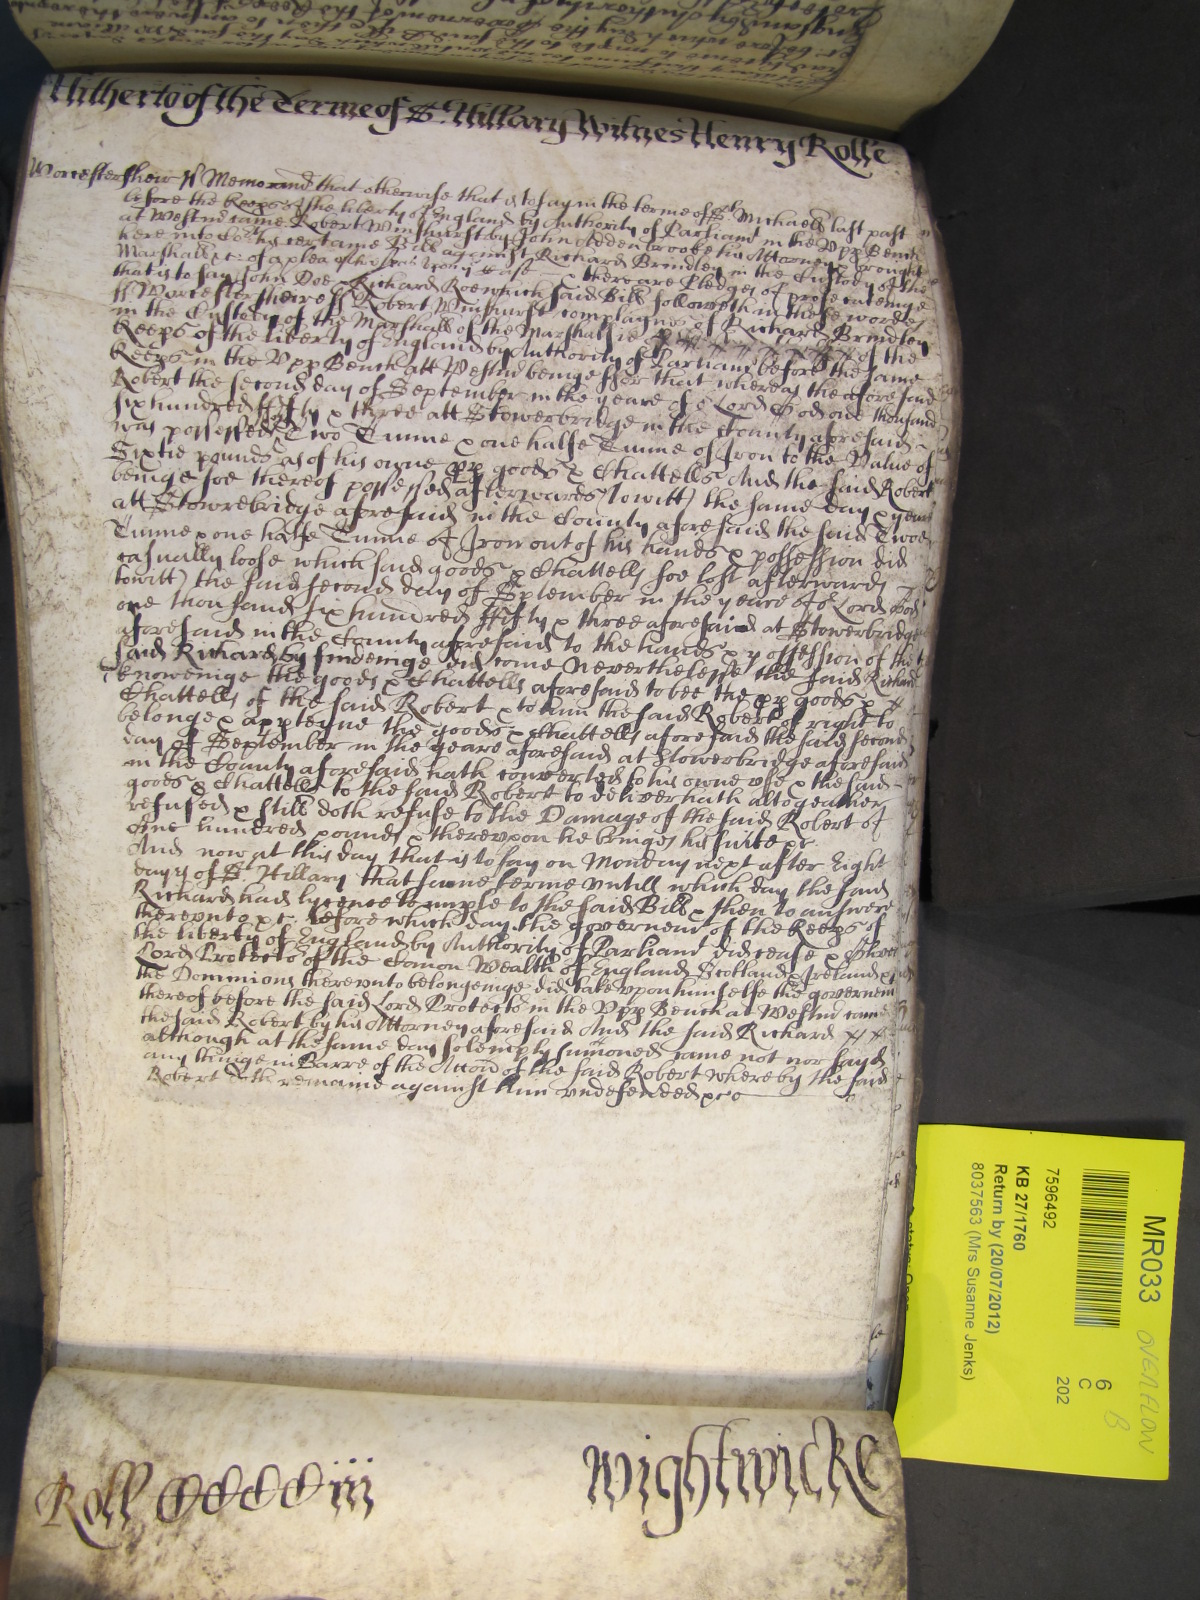 Hitherto of the Terme of St. Hillary Witnes Henry Rolle
Worcestersheir ss Memorand that otherwise that is to say in the terme of St. Michaell last past
before the Keeps of the liberty of England by Authority of Parliamt in the Vpp Bench
at Westmr came Robert Winshurst by John Addenbrooke his Attorney & brought
here into Cort his certaine Bill against Richard Brindley in the Custody of the
Marshall &c of a plea of trespas vpon the Case & there are Pledges of prosecuteinge
that is to say John Doe & Richard Roe which said Bill followeth in these wordes
ss Worcestersheir ss Robert Winshurst complaynes of Richard Brindley
in the Custody of the Marshall of the Marshalsie of the
Keeps of the liberty of England by Authority of Parliamt before the same
Keeps in the Vpp Bench att Westmr beinge ffor that whereas the aforesaid
Robert the second day of September in the yeare of or Lord God one thousand
six hundred ffifty & three att Stowerbridge in the County aforesaid
was possessed Two Tunne & one halfe Tunne of Iron to the Value of
Sixtie pounds as of his owne pp goods & Chattells And the said Robert
beinge soe thereof possessed afterwards (to witt) the same day & yeare
att Stowrebridge aforesaid in the County aforesaid the said Twoe
Tunne & one halfe Tunne of Iron out of his hands & possession did
casually loose which said goods & Chattells soe lost afterwards
(to witt) the said second day of September in the yeare of or Lord God
one thousand six hundred ffifty & three aforesaid at Stowerbridge
aforesaid in the County aforesaid to the hands & possession of the
said Richard by findeinge did come Neverthelesse the said Richard
knoweinge the goods & Chattells aforesaid to bee the pp goods &
Chattells of the said Robert & to him the said Robert of right to
belonge & appteyne the goods & Chattells aforesaid the said second
day of September in the yeare aforesaid at Stowerbridge aforesaid
in the County aforesaid hath converted to his owne vse & the said
goods & Chattells to the said Robert to deliver hath altogeather
refused & still doth refuse to the Damage of the said Robert of
One hundred pounds & therevpon he bringes his suite &c
And now at this day that is to say on Monday next after Eight
dayes of St Hillary that same terme vntill which day the said
Richard had lycence to imple to the said Bill & then to answere
therevnto &c. before which day the governemt of the Keeps of
the liberty of England by Authority of Parliamt did cease & Oliver
Lord Protector of the Comon Wealth of England Scotland & Ireland &
the Dominions therevnto belongeinge did take vpon himselfe the governemt
thereof before the said Lord Protector in the Vpp Bench at Westmr came
the said Robert by his Attorney aforesaid And the said Richard
although at the same day solemply sumoned came not nor sayd
any thinge in Barre of the Accon of the said Robert whereby the said
Robert doth remaine against him vndefended &c
Roll CCCCiii Wightwicke
MR033
OVERFLOW
B
6
C
202
7596492
KB 27/1760
Return by (20/07/2012)
8037563 (Mrs Susanne Jenks)